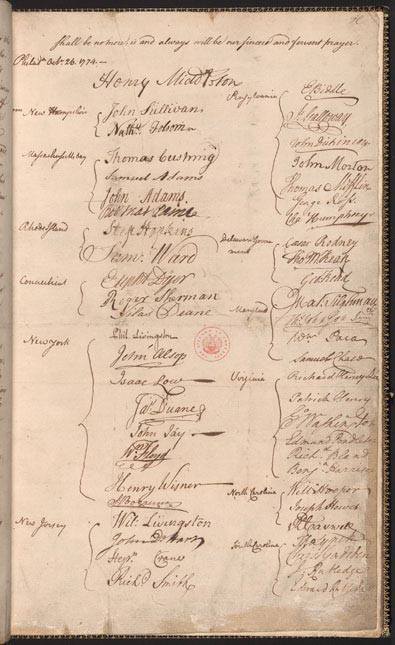 shall be no more, is and always will be our sincere and fervent prayer.
Philada Octr. 26. 1774.—
Henry Middleton
New Hampshire
John Sullivan
Nathl. Folsom
Massachusetts bay
Thomas Cushing
Samuel Adams
John Adams
Rob Treat Paine
Rhode Island
Step Hopkins
Sam: Ward
Connecticut
Elipht Dyer
Roger Sherman
Silas Deane
New York
Phil. Livingston
John Alsop
Isaac Low
Jas. Duane
John Jay
Wm. Floyd
Henry Wisner
S: Boerum
New Jersey
Wil: Livingston
John D Hart
Stepn. Crane
Richd Smith
Pensylvania
E Biddle
J: Galloway
John Dickinson
John Morton
Thomas Mifflin
George Ross
Cha Humphreys
Delaware Government
Caesar Rodney
Tho M:Kean
Geo Read
Maryland
Mat. Tilghman
Wm Paca
Samuel Chase
Virginia
Richard Henry Lee
Patrick Henry
Go Washington
Edmund Pendleton
Richd. Bland
Benjn Harrison
North Carolina
Will Hooper
Joseph Hewes
R Caswell
South Carolina
Tho Lynch
Chris Gadsden
J. Rutledge
Edward Rutledge